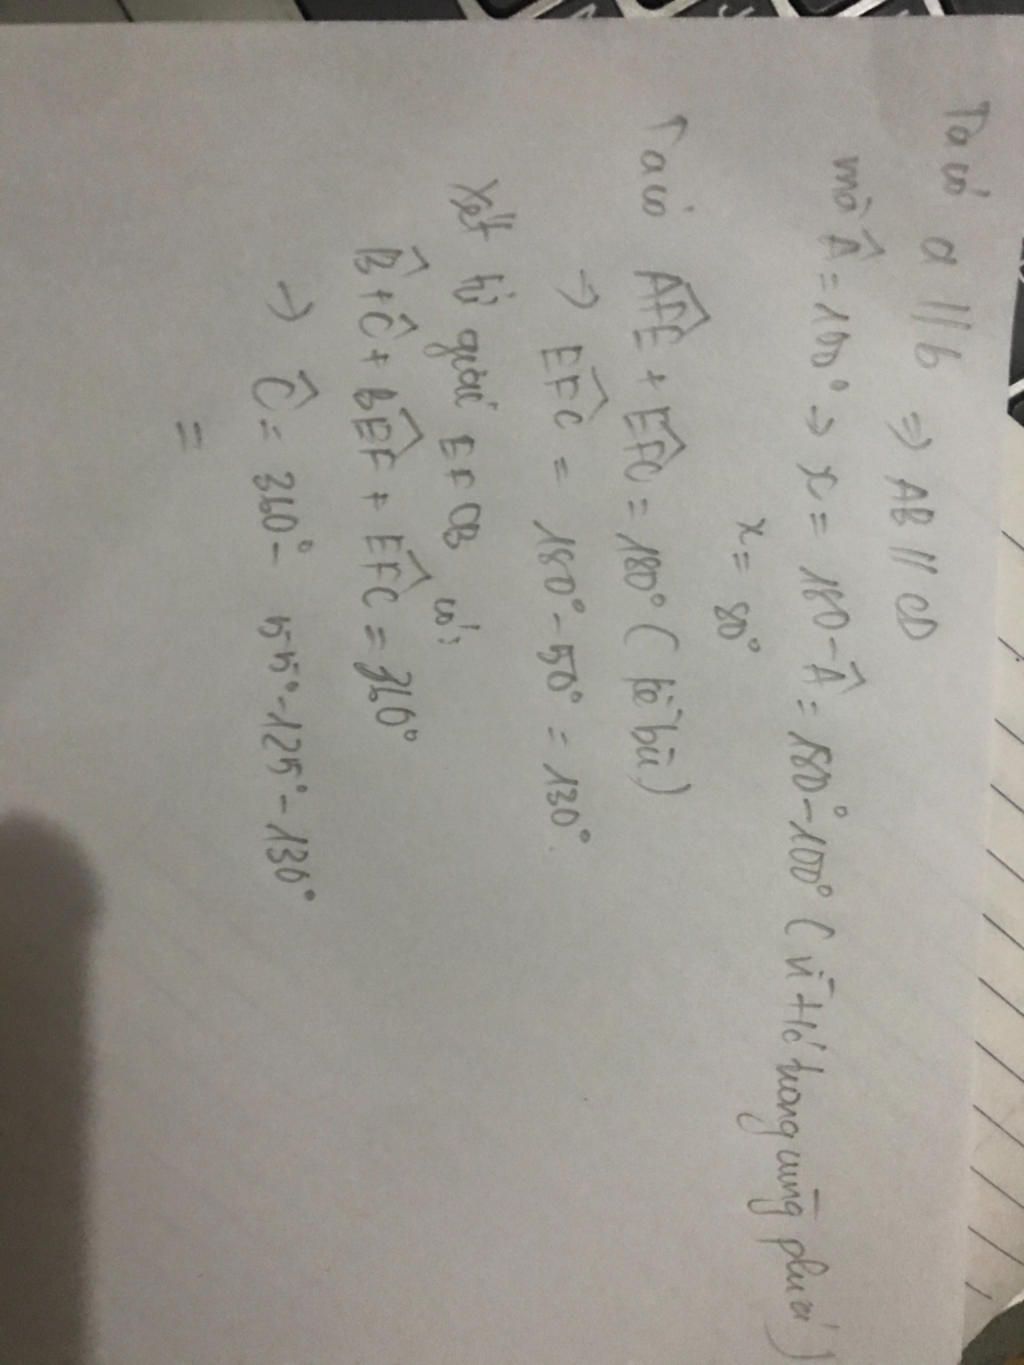 Ta có a // b ⇒ AB // CD
mà Â = 100° → x = 180 - Â = 180° - 100° (vì ở vị trí trong cùng phía)
x = 80°
Ta có AFE + EFC = 180° (kề bù)
→ EFC = 180° - 50° = 130°.
Xét tứ giác EFCB có:
B̂ + Ĉ + BEF + EFC = 360°
→ Ĉ = 360° - 55° - 125° - 130°
=